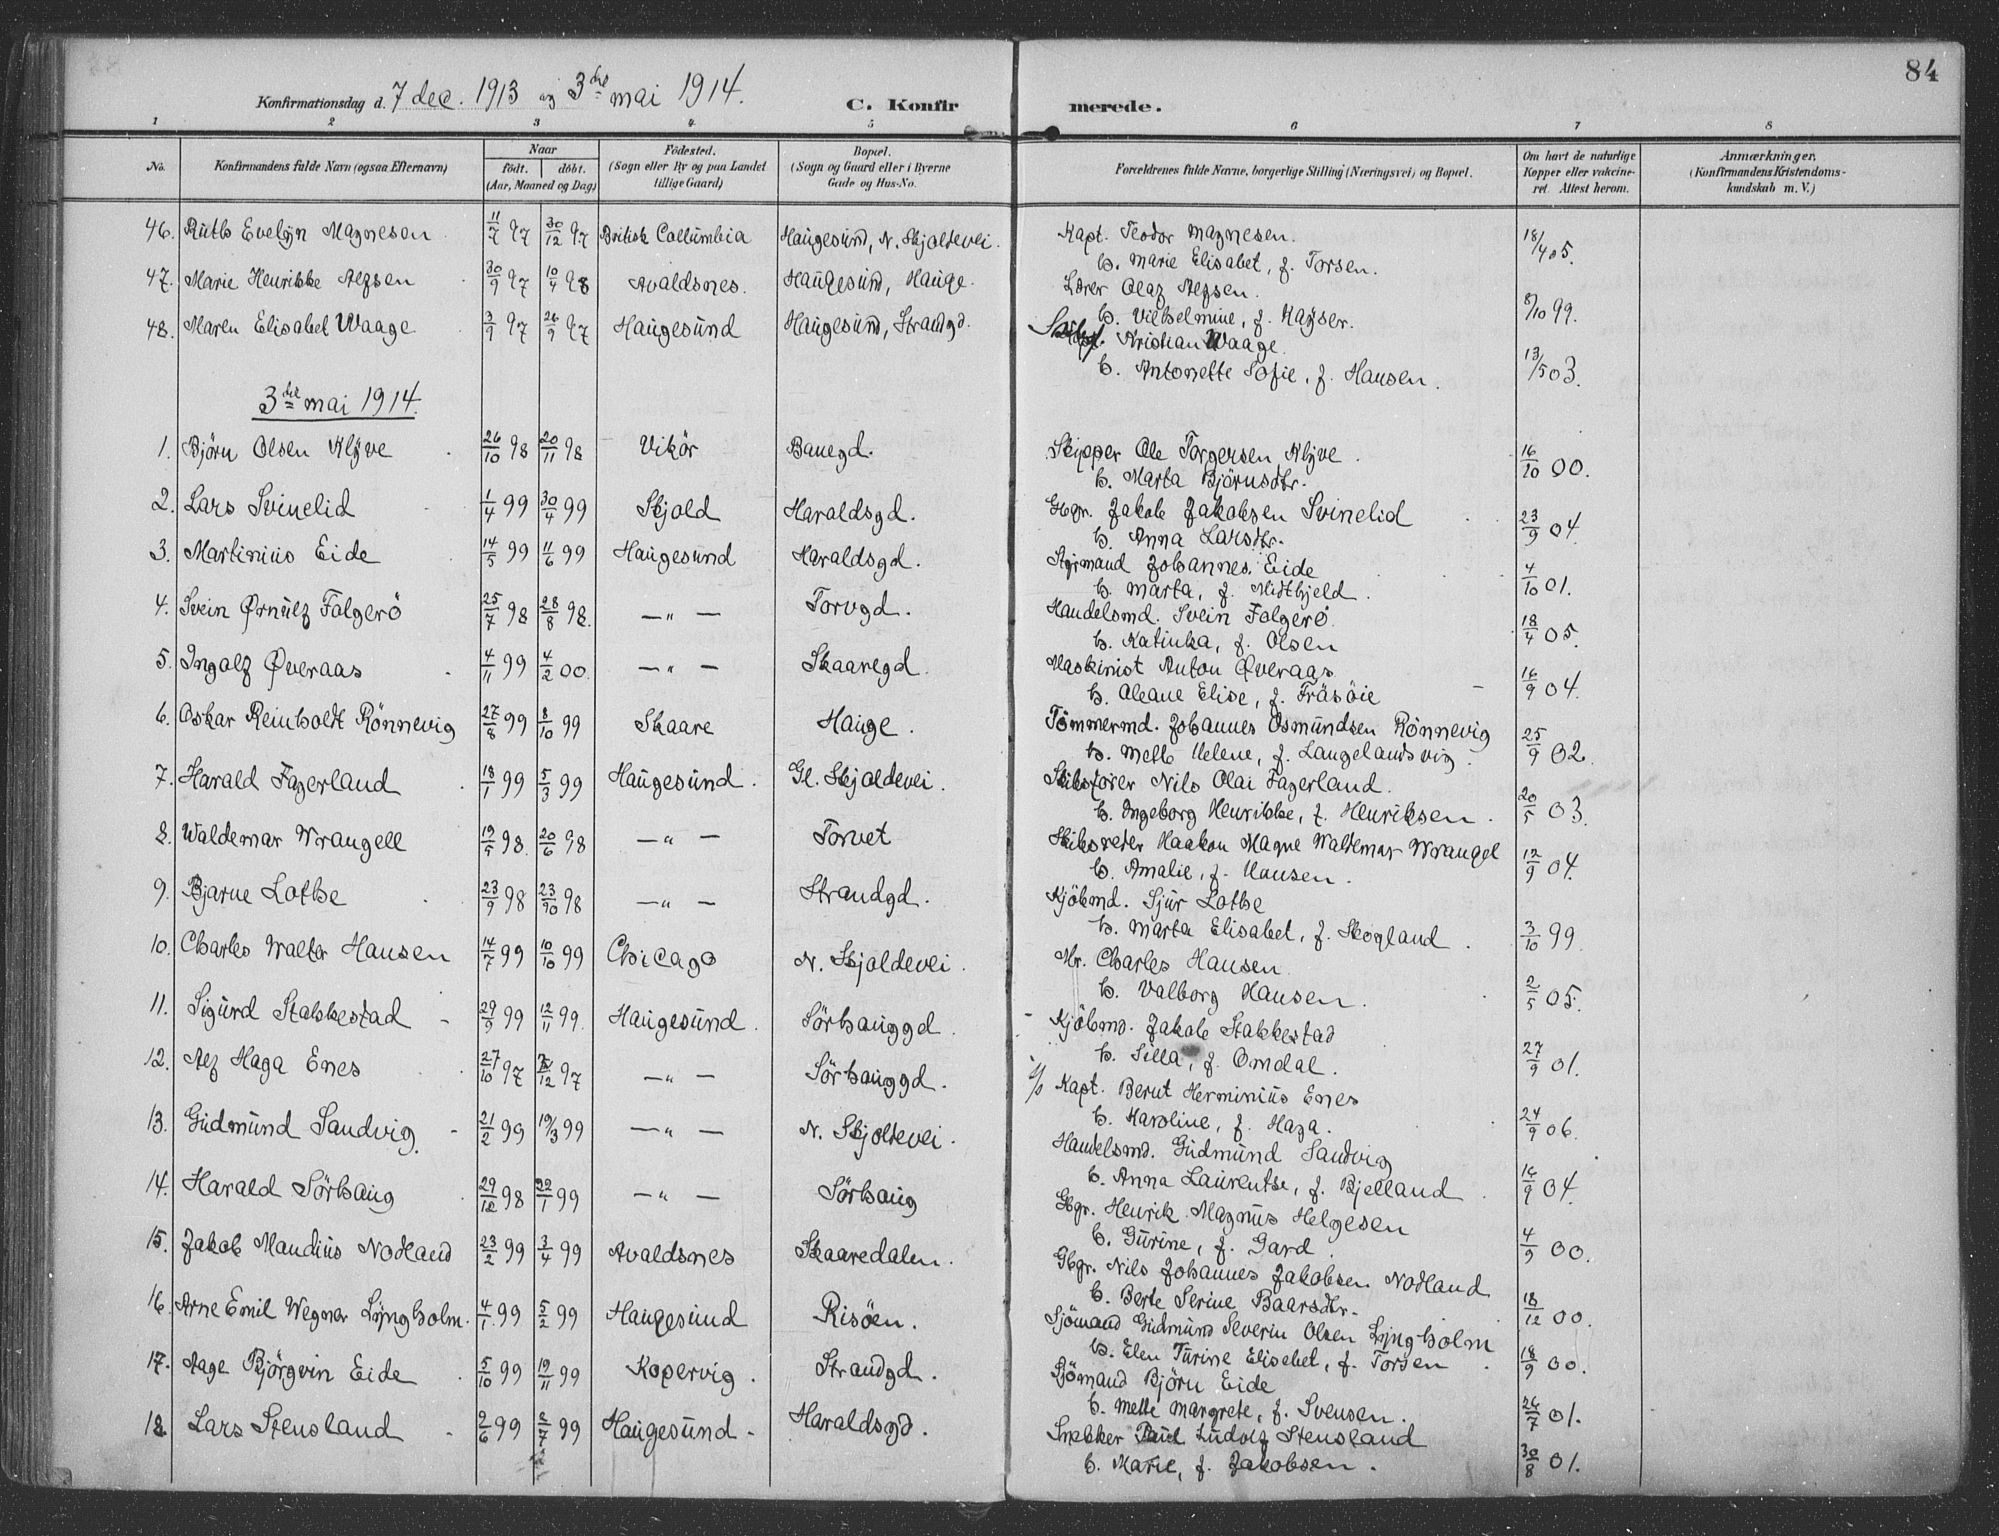 84
Konfirmationsdag d. 7 dec. 1913 og 3die mai 1914.
C. Konfirmerede.
1 2 3 4 5 6 7 8
No. Konfirmandens fulde Navn (ogsaa Efternavn) Naar født. døbt. (Aar, Maaned og Dag) Födested. (Sogn eller By og paa Landet tillige Gaard) Bopæl. (Sogn og Gaard eller i Byerne Gade og Hus-No. Forældrenes fulde Navne, borgerlige Stilling (Næringsvei) og Bopæl. Om havt de naturlige Kopper eller vakcineret. Attest herom. Anmærkninger. (Konfirmandens Kristendomskundskab m. V.)
46. Ruth Evelyn Magnesen 11/7 97 30/12 97 British Collumbia Haugesund, N. Skjoldevei. Kapt. Teodor Magnesen. 18/4 05.
h. Marie Elisabet, f. Torsen.
47. Marie Henrikke Alfsen 30/9 97 10/4 98 Avaldsnes. Haugesund, Hauge. Lærer Olaf Alfsen. 8/10 99.
h. Vilhelmine, f. Kayser.
48. Maren Elisabet Waage 3/9 97 26/9 97 Haugesund Haugesund, Strandgd. Kristian Waage. 13/5 03.
h. Antonette Sofie, f. Hansen.
3die mai 1914.
1. Bjørn Olsen Klyve 26/10 98 20/11 98 Vikör Banegd. Skipper Ole Torgersen Klyve 16/10 00.
h. Marta Björnsdtr.
2. Lars Svinelid 1/4 99 30/4 99 Skjold Haraldsgd. Gbgr. Jakob Jakobsen Svinelid 23/9 04.
h. Anna Larsdtr.
3. Martinius Eide 14/5 99 11/6 99 Haugesund Haraldsgd. Styrmand Johannes Eide 4/10 01.
h. Marta, f. Midtbjeld.
4. Svein Ørnulf Folgerö 25/7 98 28/8 98. — " — Torvgd. Handelsmd. Svein Folgerö. 18/4 05.
h. Katinka, f. Olsen
5. Ingolf Øveraas 4/11 99 4/2 00. — " — Skaaregd. Maskinist Anton Øveraas 16/9 04.
h. Oleane Elise, f. Fräsöie
6. Oskar Reinholdt Rönnevig 27/8 99 8/10 99 Skaare Hauge. Tömmermd. Johannes Osmundsen Rönnevig 25/9 02.
h. Mette Helene, f. Langelandsvig.
7. Harald Fagerland 18/1 99 5/3 99 Haugesund. Gl. Skjoldevei. Skibsförer Nils Olai Fagerland. 20/5 03.
h. Ingeborg Henrikke, f. Henriksen.
8. Waldemar Wrangell 19/5 98. 20/6 98 — " — Torvet Skibsreder Haakon Magne Waldemar Wrangel 12/9 04.
h. Amalie, f. Hansen.
9. Bjarne Lothe 23/9 98 23/10 98 — " — Strandgd. Kjöbmd. Sjur Lothe 3/10 99.
h. Marta Elisabet, f. Skogland.
10. Charles Walter Hansen 14/7 99 10/10 99 Chicago N. Skjoldevei. Mr. Charles Hansen. 2/5 05.
h. Valborg Hansen.
11. Sigurd Stakkestad 29/9 99 12/11 99. Haugesund. Sörhauggd. Kjöbmd. Jakob Stakkestad 27/9 01.
h. Silla, f. Omdal.
12. Alf Haga Enes 27/10 97 /12 97 — " — Sörhauggd. Kapt. Bernt Herminius Enes 24/9 06.
h. Karoline, f. Haga.
13. Gudmund Sandvig. 21/2 99 19/3 99 — " — N. Skjoldevei. Handelsmd. Gudmund Sandvig 16/9 04.
h. Anna Laurentse, f. Bjelland.
14. Harald Sörhaug 29/12 98 22/1 99 — " — Sörhaug Gbgr. Henrik Magnus Helgesen 4/9 00.
h. Gurine, f. Gard.
15. Jakob Mandius Nodland 23/2 99 3/4 99 Avaldsnes Skaaredalen. Gbgr. Nils Johannes Jakobsen Nodland 18/12 00.
h. Berte Serine Baarsdtr.
16. Arne Emil Wegner Lyngholm. 4/1. 99 5/2 99 Haugesund Risöen. Sjömand Gudmund Severin Olsen Lyngholm 18/9 00.
h. Elen Turine Elisabet, f. Torsen.
17. Aage Björgvin Eide 5/10 99 19/11 99 Kopervig. Strandgd. Sjömand Björn Eide 26/7 01.
h. Mette Margrete, f. Svensen.
18. Lars Stensland 2/6 99 2/7 99 Haugesund Haraldsgd. Snekker Paul Ludolf Stensland 30/8 01.
h. Marie, f. Jakobsen.